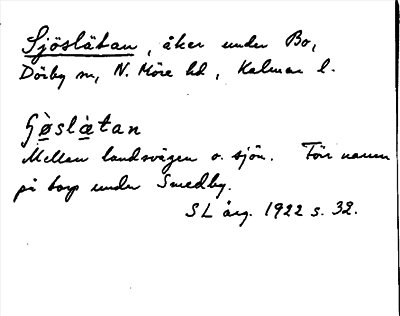 Sjöslätan, åker under Bo,
Dörby sn, N. Möre hd, Kalmar l.
Mellan landsvägen o. sjön. Förr namn
på torp under Smedby.
SL årg. 1922 s. 32.